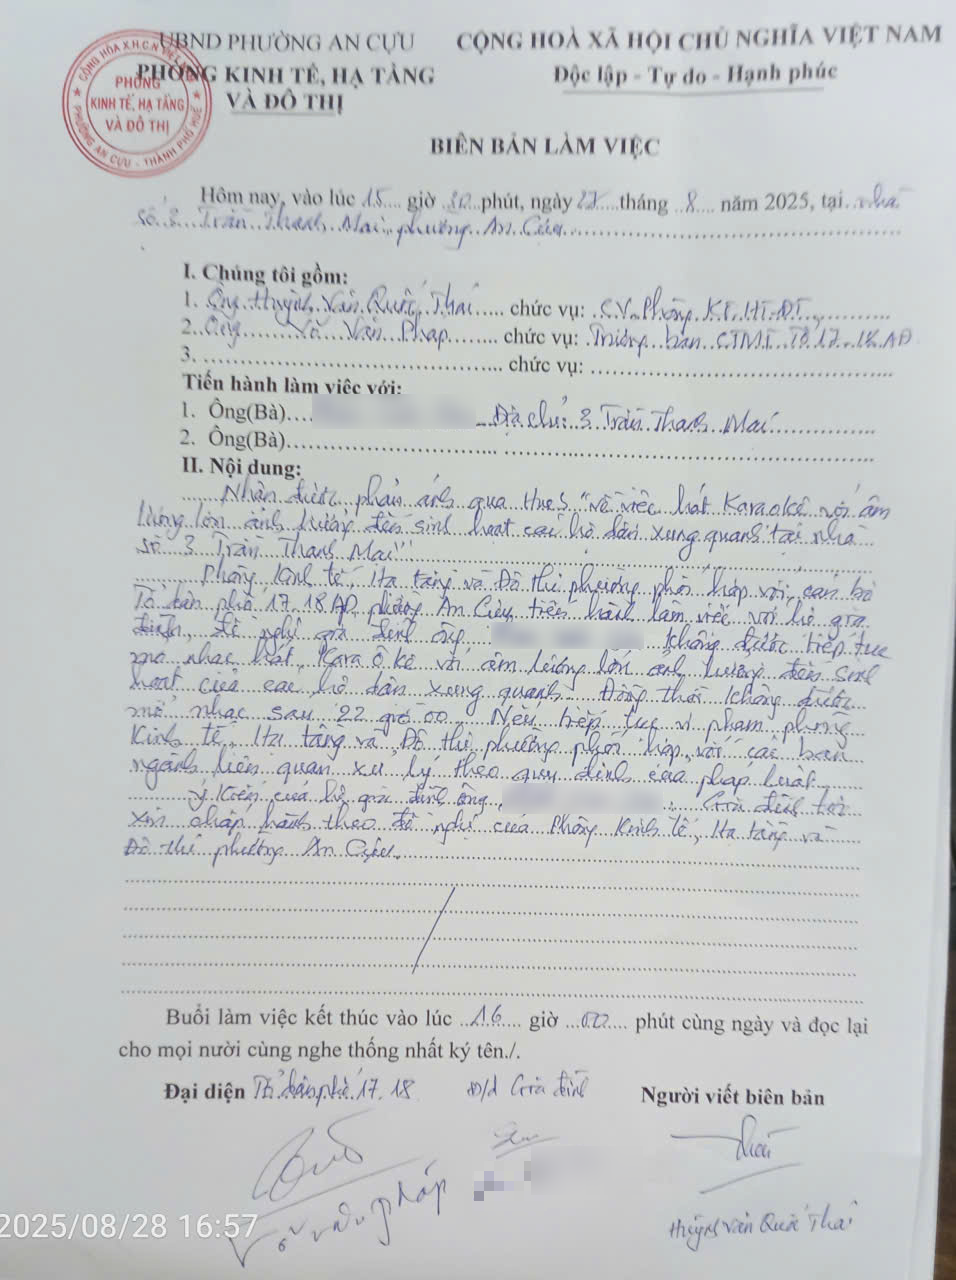 UBND PHƯỜNG AN CỰU
PHÒNG KINH TẾ, HẠ TẦNG
VÀ ĐÔ THỊ
CỘNG HOÀ XÃ HỘI CHỦ NGHĨA VIỆT NAM
Độc lập - Tự do - Hạnh phúc
CỘNG HÒA X.H.C.N VIỆT NAM
PHÒNG
KINH TẾ, HẠ TẦNG
VÀ ĐÔ THỊ
PHƯỜNG AN CỰU - THÀNH PHỐ HUẾ
BIÊN BẢN LÀM VIỆC
Hôm nay, vào lúc 15 giờ 30 phút, ngày 27 tháng 8 năm 2025, tại nhà
Số 3 Trần Thanh Mại, phường An Cựu
I. Chúng tôi gồm:
1. Ông Huỳnh Văn Quốc Thái chức vụ: CV. Phòng KT, HT-ĐT
2. Ông Võ Văn Pháp chức vụ: Trưởng ban CTMT Tổ 17-18 AĐ
3. chức vụ:
Tiến hành làm việc với:
1. Ông(Bà) Địa chỉ: 3 Trần Thanh Mại
2. Ông(Bà)
II. Nội dung:
Nhận được phản ánh qua HueS "về việc hát Karaokê với âm
lượng lớn ảnh hưởng đến sinh hoạt các hộ dân xung quanh tại nhà
số 3 Trần Thanh Mại"
Phòng Kinh tế, Hạ tầng và Đô thị phường phối hợp với cán bộ
Tổ dân phố 17, 18 AĐ, phường An Cựu tiến hành làm việc với hộ gia
đình, đề nghị gia đình ông không được tiếp tục
mở nhạc hát Kara ô kê với âm lượng lớn ảnh hưởng đến sinh
hoạt của các hộ dân xung quanh. Đồng thời không được
mở nhạc sau 22 giờ 00. Nếu tiếp tục vi phạm phòng
Kinh tế, Hạ tầng và Đô thị phường phối hợp với các ban
ngành liên quan xử lý theo quy định của pháp luật.
Ý kiến của hộ gia đình ông : Gia đình tôi
xin chấp hành theo đề nghị của Phòng Kinh tế, Hạ tầng và
Đô thị phường An Cựu.
Buổi làm việc kết thúc vào lúc 16 giờ 00 phút cùng ngày và đọc lại
cho mọi nười cùng nghe thống nhất ký tên./.
Đại diện Tổ dân phố 17, 18 Đ/d Gia đình Người viết biên bản
Võ Văn Pháp
Huỳnh Văn Quốc Thái
2025/08/28 16:57